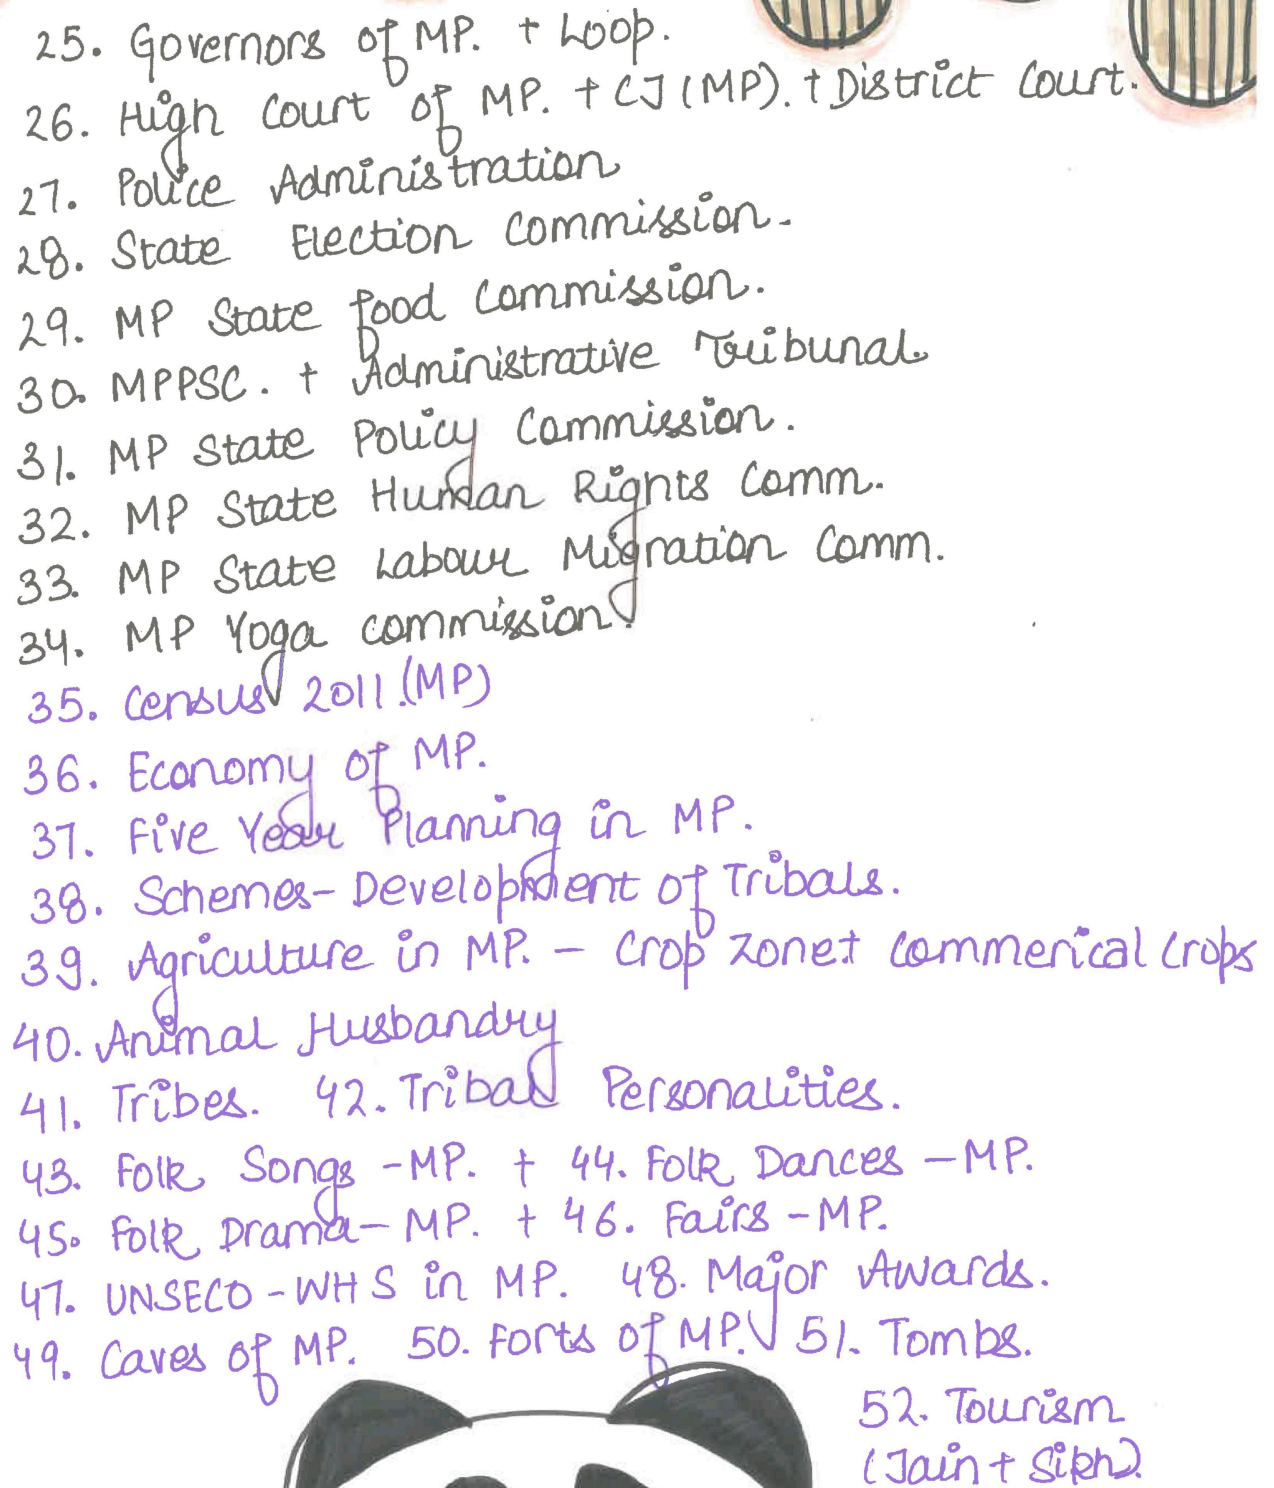 25. Governors of MP. + LoOp.
26. High Court of MP. + CJ (MP). + District Court.
27. Police Administration
28. State Election Commission.
29. MP State food Commission.
30. MPPSC. + Administrative Tribunal
31. MP State Policy Commission.
32. MP State Human Rights Comm.
33. MP State Labour Migration Comm.
34. MP Yoga commission.
35. Census 2011.(MP)
36. Economy of MP.
37. Five Year Planning in MP.
38. Schemes- Development of Tribals.
39. Agriculture in MP. - Crop zone+ Commerical Crops
40. Animal Husbandry
41. Tribes. 42. Tribal Personalities.
43. Folk Songs -MP. + 44. Folk Dances -MP.
45. Folk Drama- MP. + 46. Fairs -MP.
47. UNSECO -WHS in MP. 48. Major Awards.
49. Caves of MP. 50. Forts of MP. 51. Tombs.
52. Tourism
(Jain + Sikh)